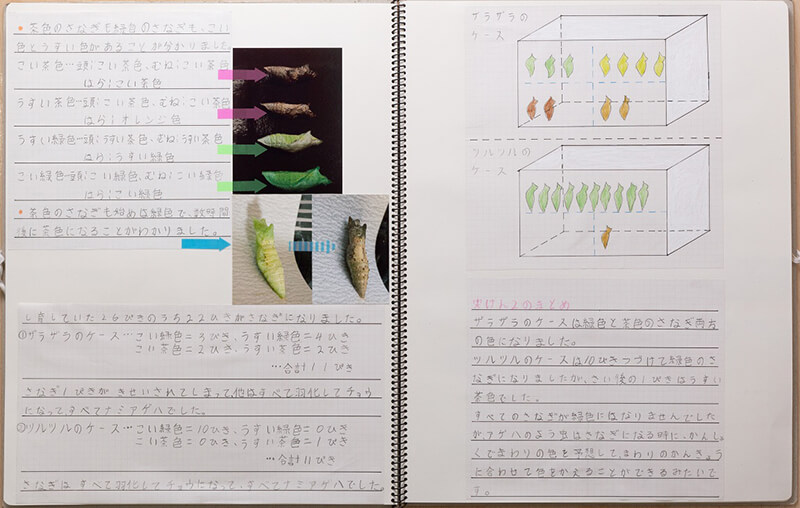 ・茶色のさなぎも緑色のさなぎも、こい
色とうすい色があることが分かりました。
こい茶色…頭:こい茶色、むね:こい茶色
はら:こい茶色
うすい茶色…頭:こい茶色、むね:こい茶色
はら:オレンジ色
うすい緑色…頭:うすい茶色、むね:うすい茶色
はら:うすい緑色
こい緑色…頭:こい緑色、むね:こい緑色
はら:こい緑色
・茶色のさなぎも始めは緑色で、数時間
後に茶色になることがわかりました。
し育していた26ぴきのうち22ひきがさなぎになりました。
①ザラザラのケース…こい緑色=3びき、うすい緑色=4ひき
こい茶色=2ひき、うすい茶色=2ひき
…合計11ぴき
さなぎ1ぴきがきせいされてしまって、他はすべて羽化してチョウ
になって、すべてナミアゲハでした。
②ツルツルのケース…こい緑色=10ぴき、うすい緑色=0ひき
こい茶色=0ひき、うすい茶色=1ぴき
…合計11ぴき
さなぎはすべて羽化してチョウになって、すべてナミアゲハでした。
ザラザラの
ケース
ツルツルの
ケース
実けん2のまとめ
ザラザラのケースは緑色と茶色のさなぎ両方
の色になりました。
ツルツルのケースは10ぴきつづけて緑色のさ
なぎになりましたが、さい後の1ぴきはうすい
茶色でした。
すべてのさなぎが緑色にはなりませんでした
がアゲハのよう虫はさなぎになる時に、かんし
ょくでまわりの色を予想して、まわりのかんきょう
と合わせて色をかえることができるみたいで
す。